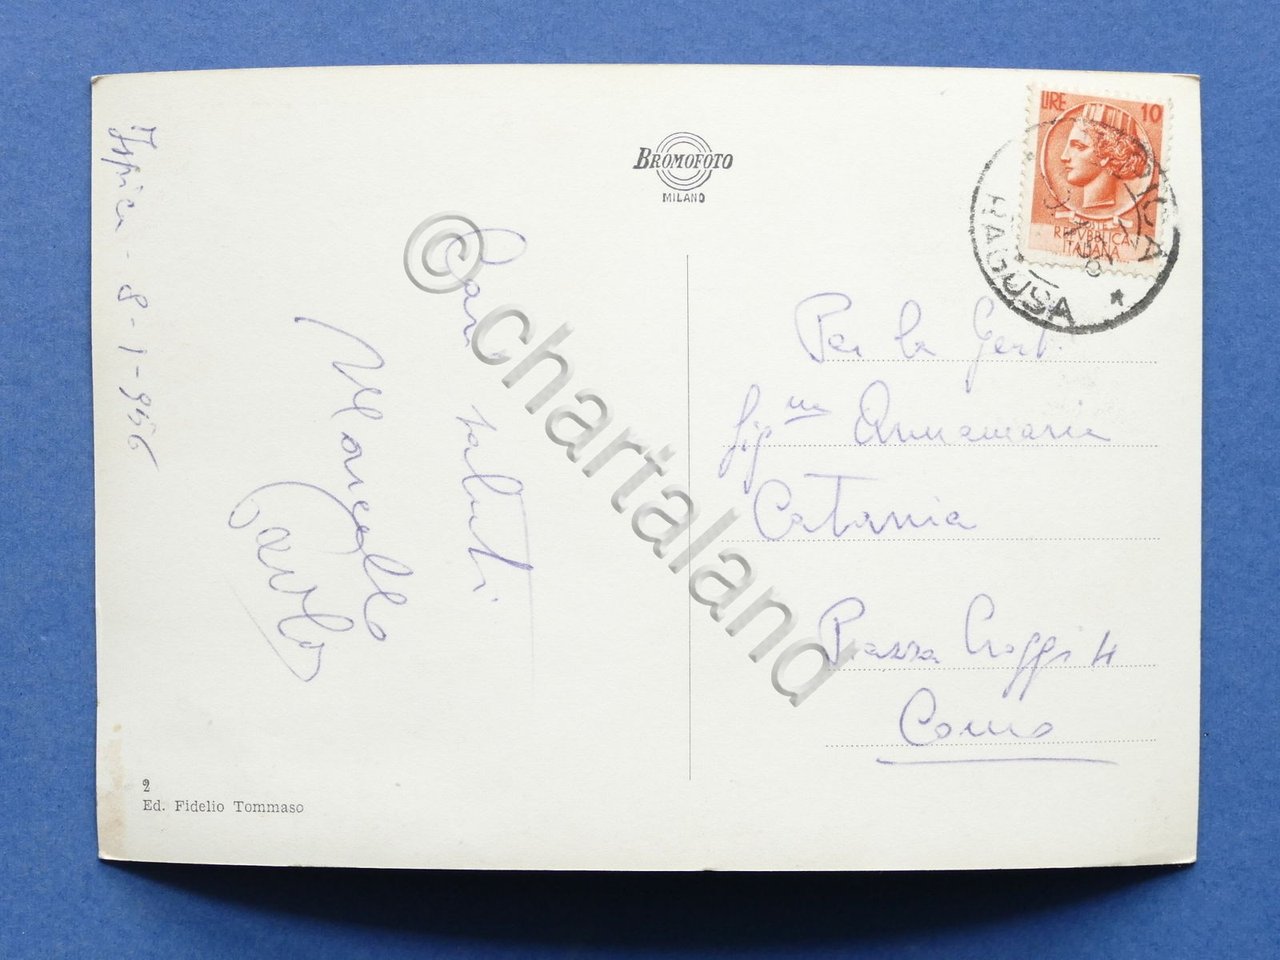 Ispica - 8-1-956
Cari saluti
Marcello
Paolo
2
Ed. Fidelio Tommaso
BROMOFOTO
MILANO
LIRE 10
POSTE
REPVBBLICA
ITALIANA
ISPICA
RAGUSA
Per la Gent.
Sig.na Annamaria
Catania
Piazza Croggi 4
Como
© chartaland